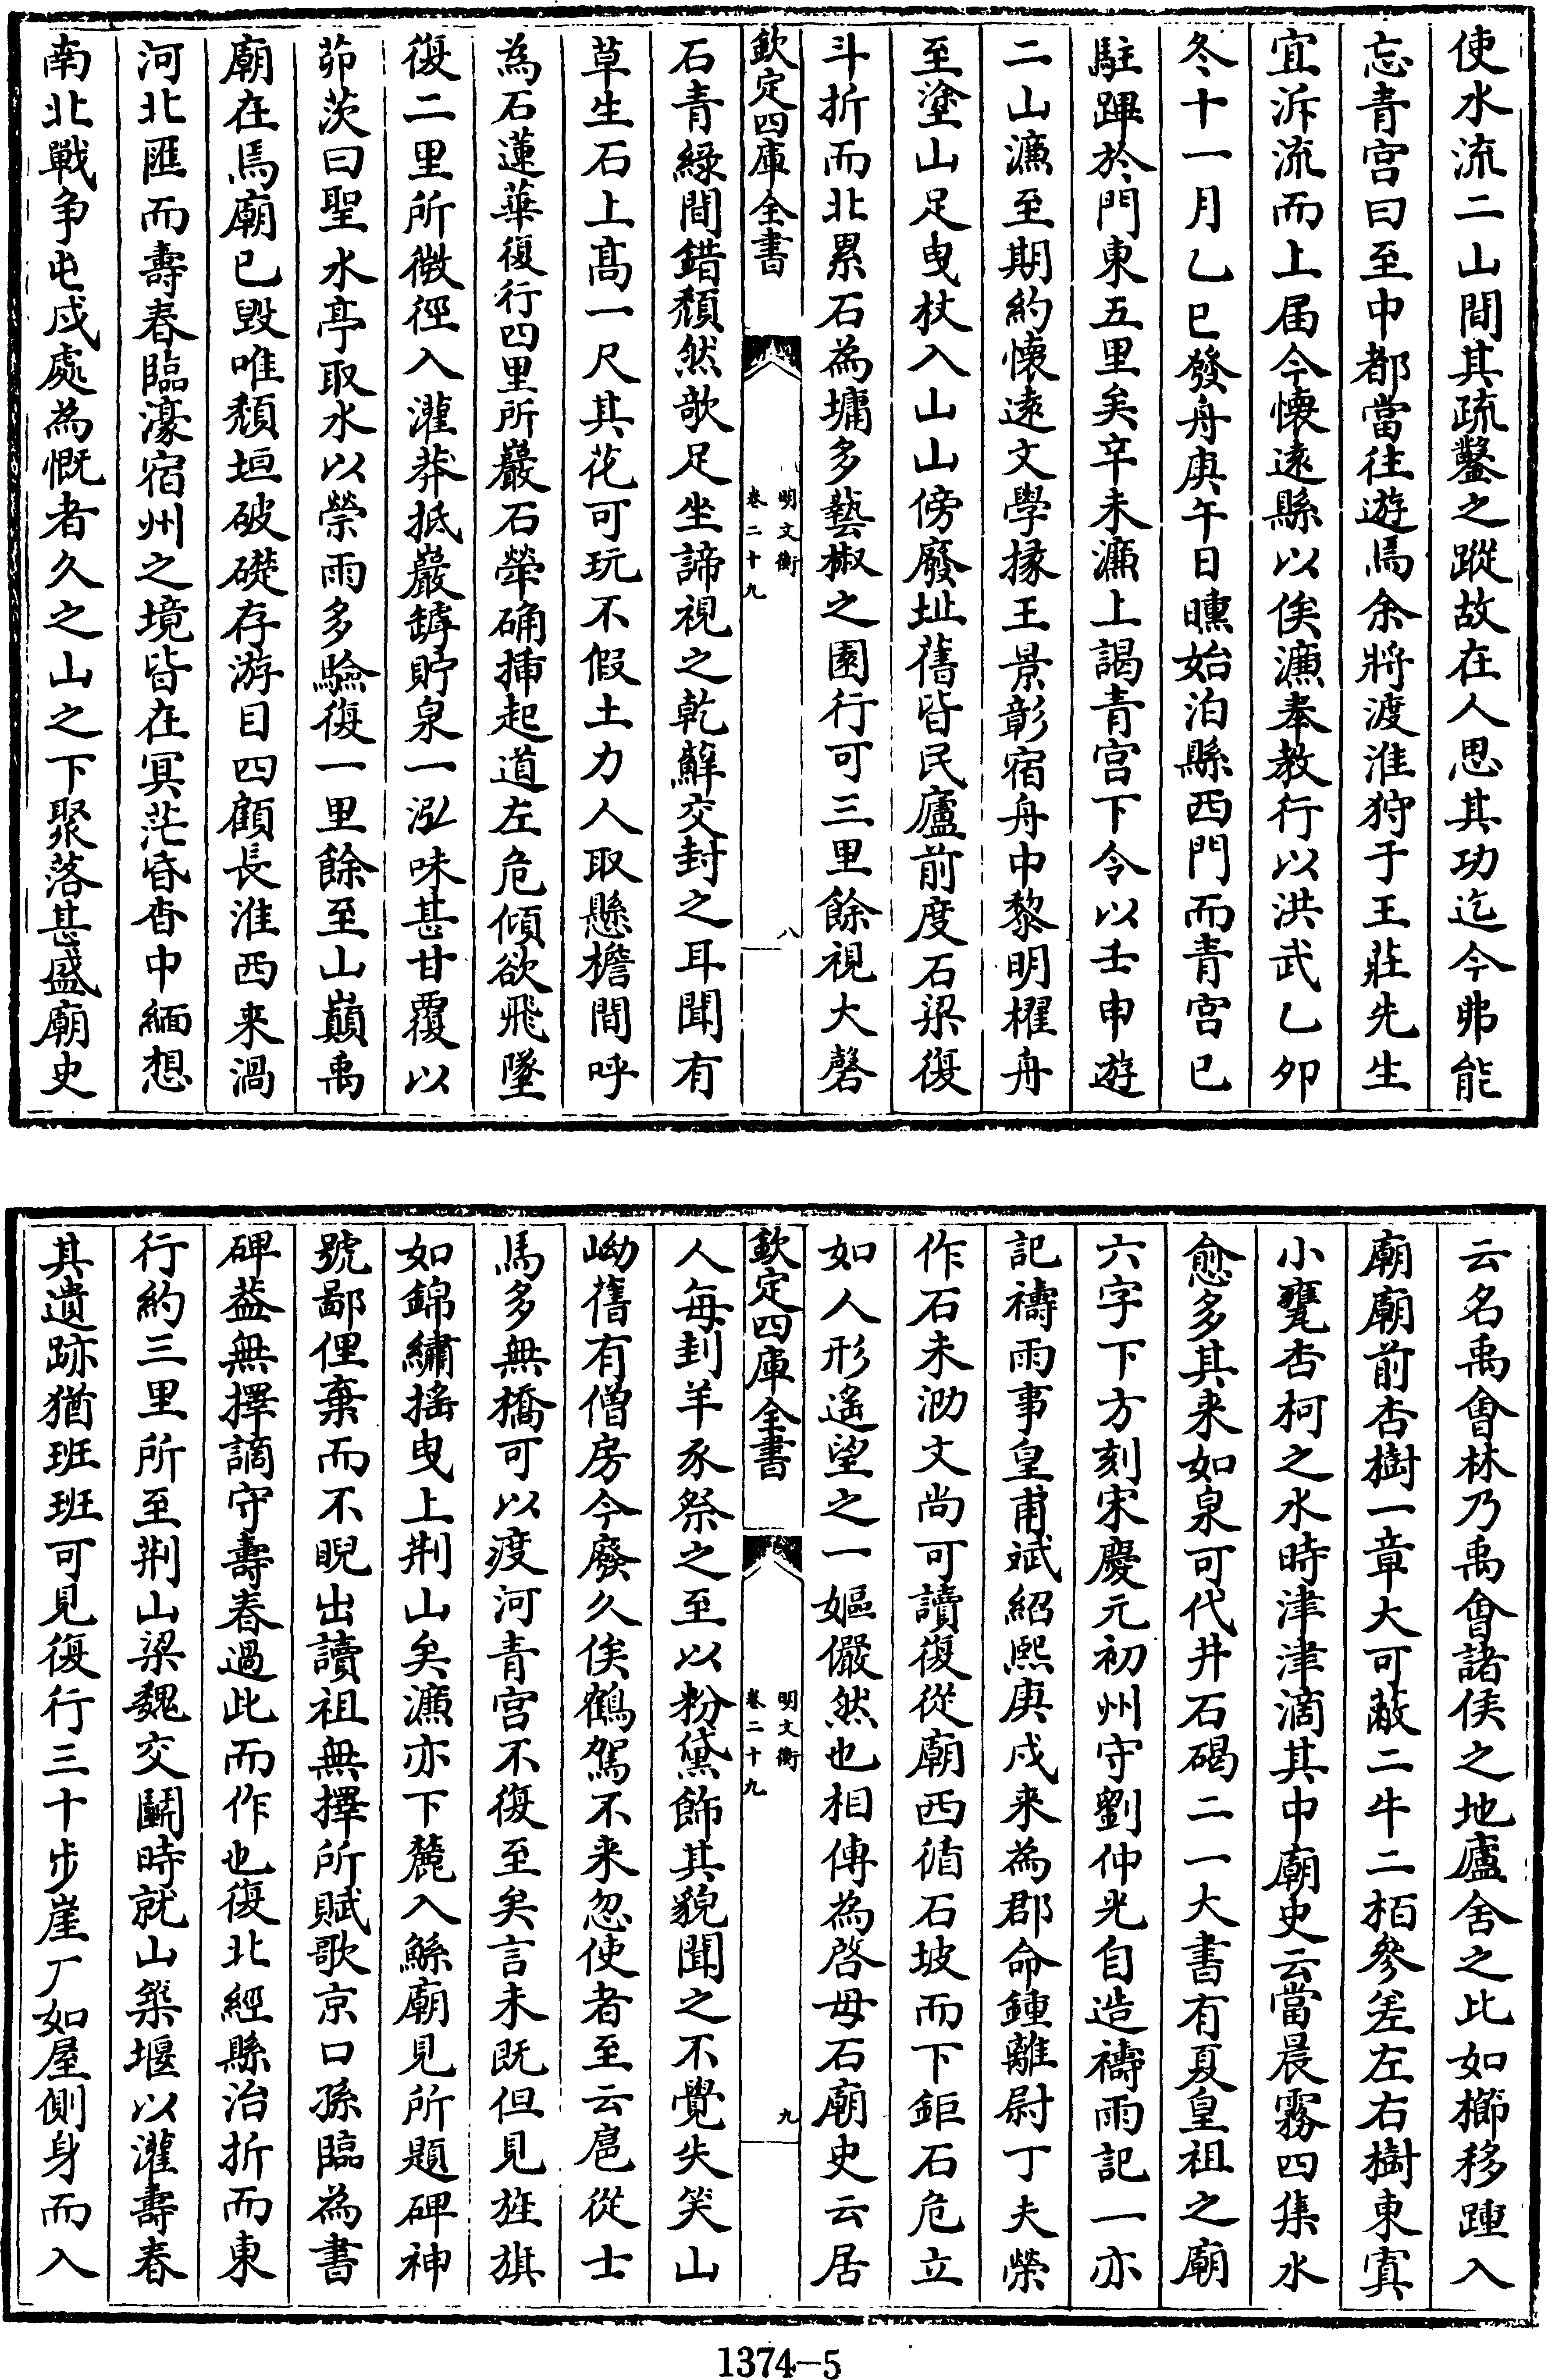 使水流二山間其疏鑿之蹤故在人思其功迄今弗能
忘青宫曰至中都當往遊焉余將渡淮狩于王莊先生
宜泝流而上届今懷遠縣以俟濂奉教行以洪武乙卯
冬十一月乙巳發舟庚午日曛始泊縣西門而青宫已
駐蹕於門東五里矣辛未濂上謁青宫下令以壬申遊
二山濂至期約懷遠文學掾王景彰宿舟中黎明櫂舟
至塗山足曳杖入山山傍廢址舊皆民廬前度石梁復
斗折而北累石為墉多藝椒之園行可三里餘視大磬
欽定四庫全書
明文衡
卷二十九
八
石青緑間錯頽然欹足坐諦視之乾蘚交封之耳聞有
草生石上髙一尺其花可玩不假土力人取懸檐間呼
為石蓮華復行四里所巖石犖确揷起道左危傾欲飛墜
復二里所微徑入灌莽抵巖罅貯泉一泓味甚甘覆以
茆茨曰聖水亭取水以禜雨多驗復一里餘至山巔禹
廟在焉廟已毁唯頽垣破礎存游目四顧長淮西来渦
河北匯而壽春臨濠宿州之境皆在冥茫昏杳中緬想
南北戰争屯戍處為慨者久之山之下聚落甚盛廟史
云名禹會林乃禹會諸侯之地廬舍之比如櫛移踵入
廟廟前杏樹一章大可蔽二牛二栢參差左右樹東寘
小甕杏柯之水時津津滴其中廟史云當晨霧四集水
愈多其来如泉可代井石碣二一大書有夏皇祖之廟
六字下方刻宋慶元初州守劉仲光自造禱雨記一亦
記禱雨事皇甫斌紹熙庚戌来為郡命鍾離尉丁夫榮
作石未泐文尚可讀復從廟西循石坡而下鉅石危立
如人形遙望之一嫗儼然也相傳為啓母石廟史云居
欽定四庫全書
明文衡
卷二十九
九
人每刲羊豕祭之至以粉黛飾其貌聞之不覺失笑山
㘭舊有僧房今廢久俟鶴駕不来忽使者至云扈從士
馬多無橋可以渡河青宫不復至矣言未既但見旌旗
如錦繡搖曳上荆山矣濂亦下麓入鯀廟見所題碑神
號鄙俚棄而不睨出讀祖無擇所賦歌京口孫臨為書
碑葢無擇謫守壽春過此而作也復北經縣治折而東
行約三里所至荆山梁魏交鬭時就山築堰以灌壽春
其遺跡猶班班可見復行三十步崖厂如屋側身而入
1374—5